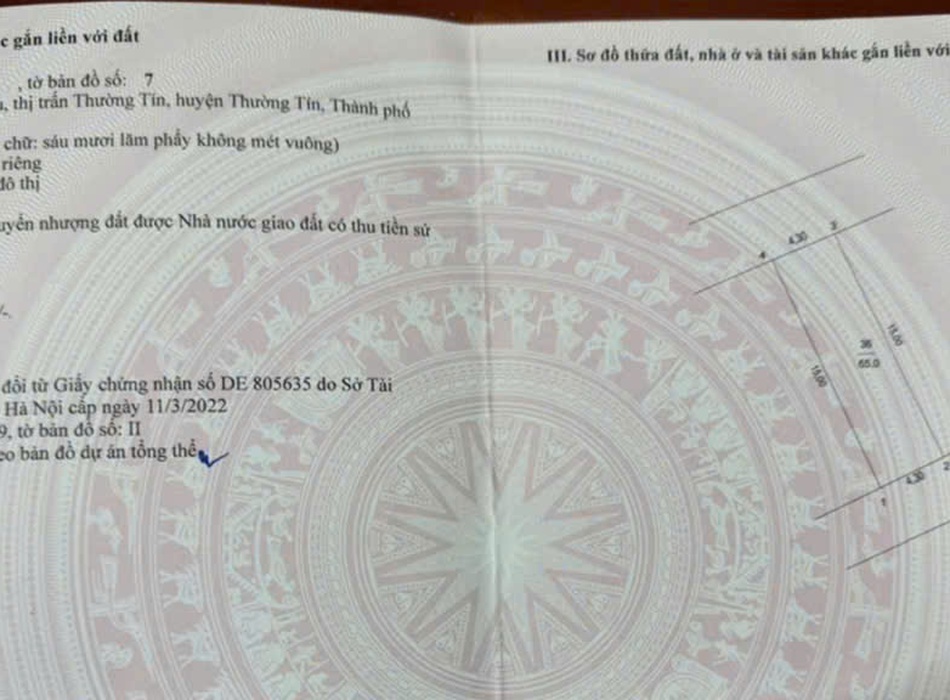 c gắn liền với đất
, tờ bản đồ số: 7
, thị trấn Thường Tín, huyện Thường Tín, Thành phố
chữ: sáu mươi lăm phẩy không mét vuông)
riêng
đô thị
uyển nhượng đất được Nhà nước giao đất có thu tiền sử
đổi từ Giấy chứng nhận số DE 805635 do Sở Tài
Hà Nội cấp ngày 11/3/2022
9, tờ bản đồ số: II
eo bản đồ dự án tổng thể
III. Sơ đồ thửa đất, nhà ở và tài sản khác gắn liền với
4
4,30
3
15,00
36
65.0
15,00
1
4,30
2